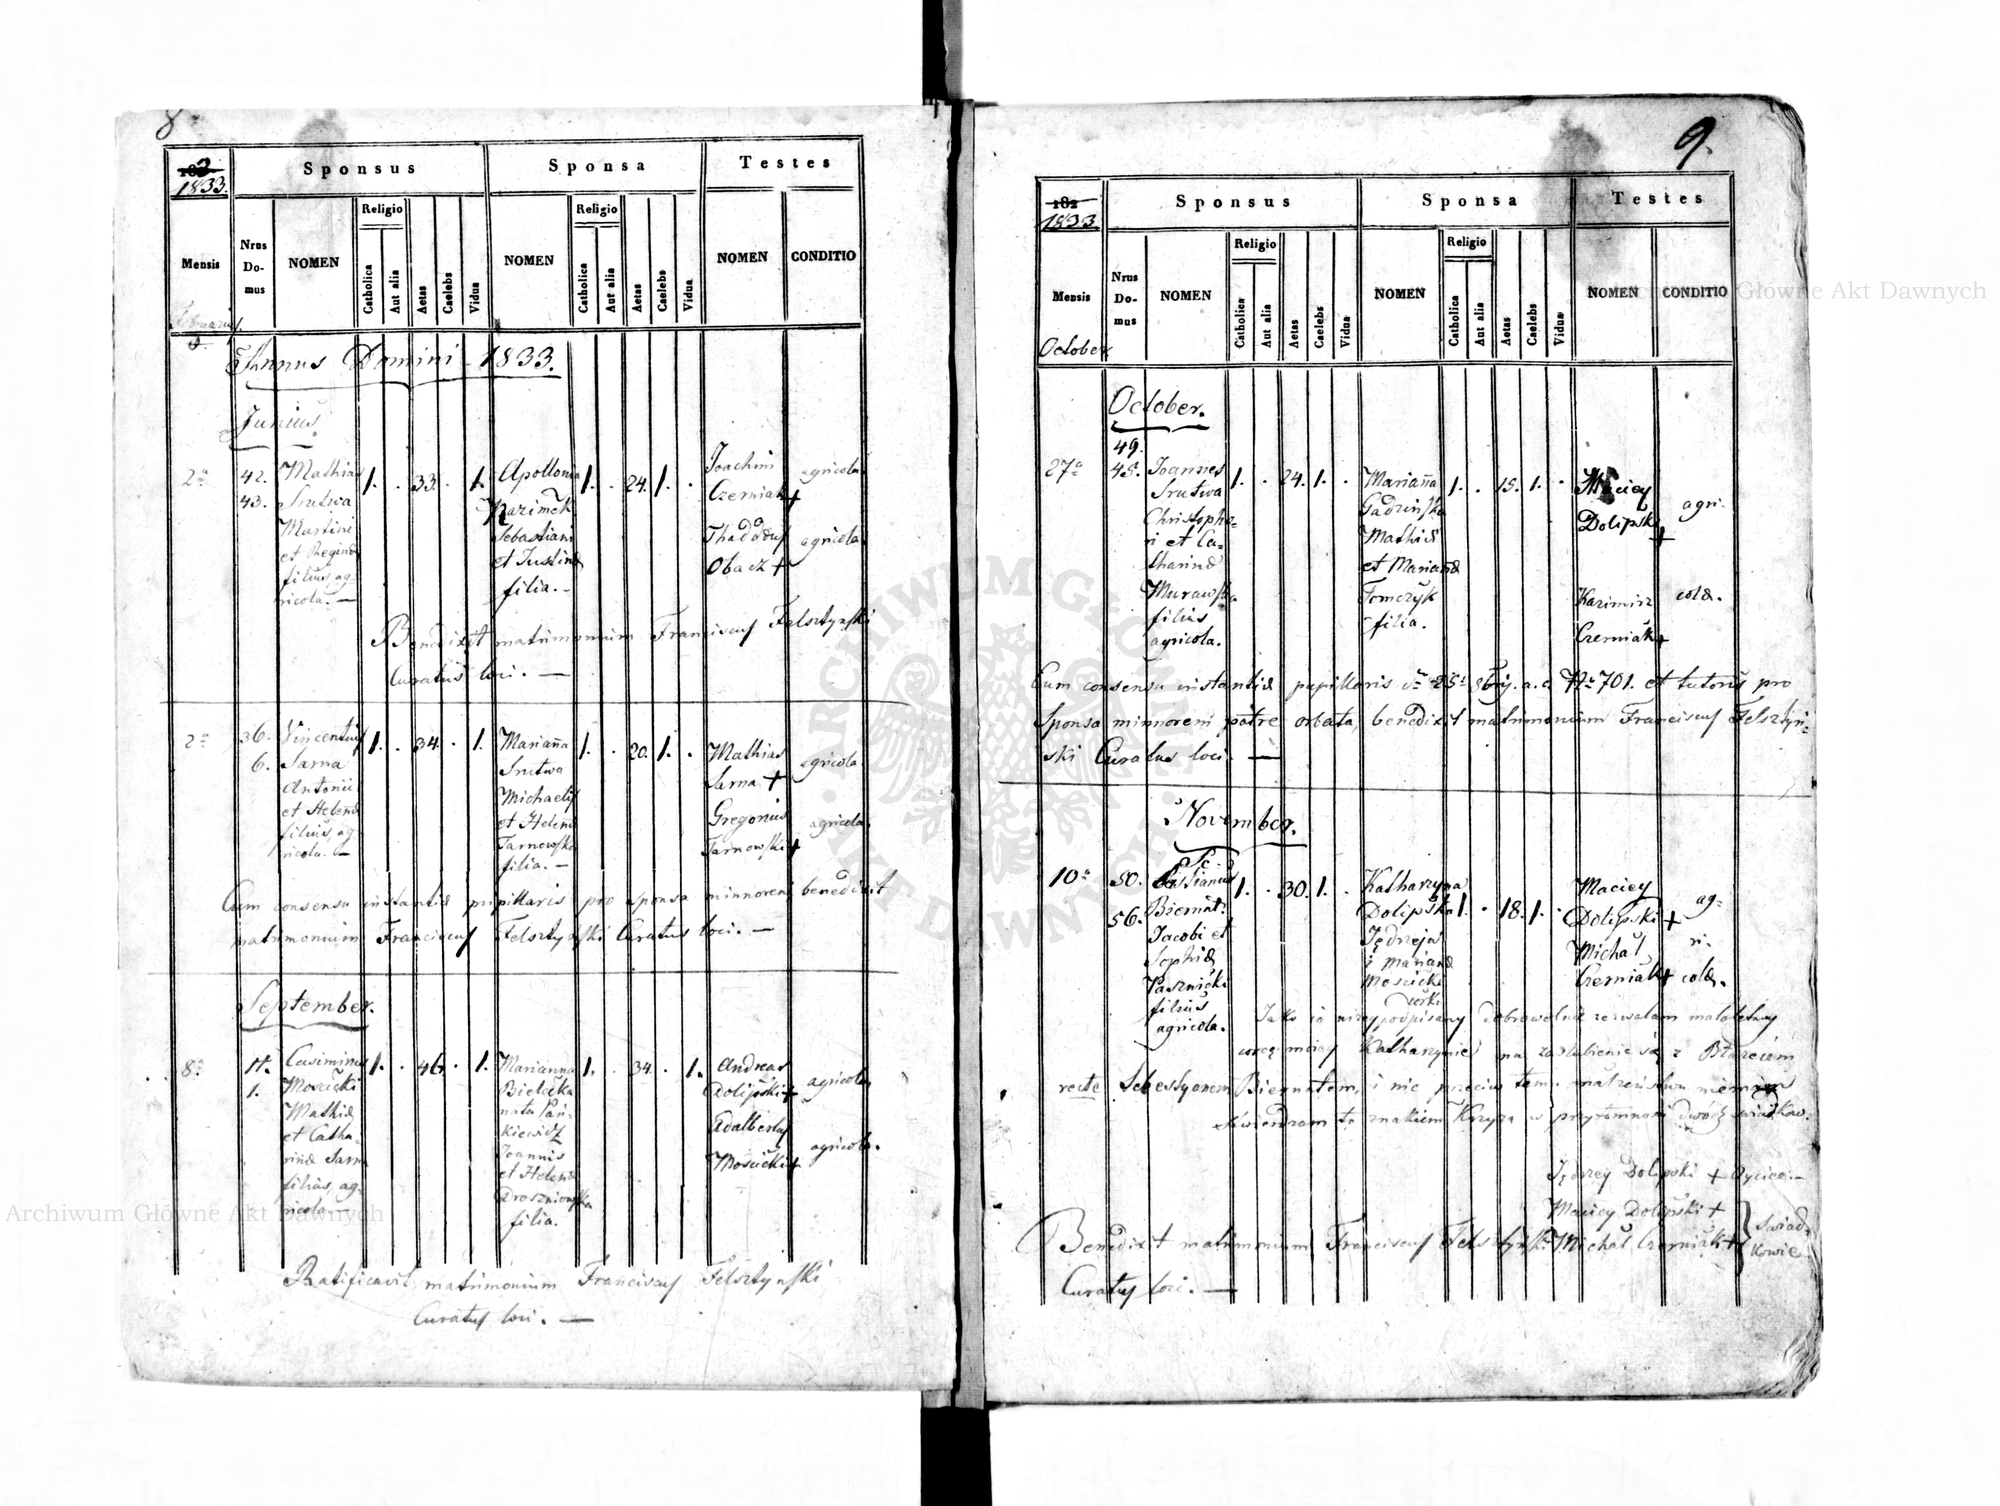 8
1833.
Sponsus
Sponsa
Testes
Mensis
Nrus Do- mus
NOMEN
Religio
Catholica
Aut alia
Aetas
Caelebs
Vidua
NOMEN
Religio
Catholica
Aut alia
Aetas
Caelebs
Vidua
NOMEN
CONDITIO
Annus Domini 1833.
Junius
2a
42.
43.
Mathias
Srutwa
Martini
et Reginæ
filius, ag-
ricola. —
1. . 33. . 1.
Apollonia
Kazimek
Sebastiani
et Justinæ
filia. -
1. . 24. 1. .
Joachim
Czerniak +
Obacz +
agricola
agricola
Benedixit matrimonium Franciscus Felsztynski
Curatus loci. —
2a
36.
6.
Vincentius
Sarna
Antonii
et Helenæ
filius, ag-
ricola. —
1. . 34. . 1.
Marianna
Srutwa
Michaelis
et Helenæ
Tarnowska
filia. —
1. . 20. 1. .
Mathias
Sarna +
Gregorius
Tarnowski +
agricola
agricola.
Cum consensu instantiæ pupillaris pro sponsa minnoreni benedixit
matrimonium Franciscus Felsztynski Curatus loci. —
September.
8a
1.
Casimirus
Mościcki
Mathiæ
et Catha-
rinæ Sarna
filius, ag-
ricola —
1. . 46. . 1.
Marianna
nata Pan-
kiewicz
Joannis
et Helenæ
filia.
1. . 34. . 1.
Andreas
Dolipski +
Adalbertus
Mościcki +
agricola
agricola.
Ratificavit matrimonium Franciscus Felsztynski
Curatus loci. —
9.
1833.
Sponsus
Sponsa
Testes
Mensis
October
Nrus Do- mus
NOMEN
Religio
Catholica
Aut alia
Aetas
Caelebs
Vidua
NOMEN
Religio
Catholica
Aut alia
Aetas
Caelebs
Vidua
NOMEN
CONDITIO
October.
27a
49.
45.
Joannes
Srutwa
Christopho-
ri et Ca-
tharinæ
Murawska
filius
agricola.
1. . 24. 1. .
Marianna
Gadzinska
Mathiæ
et Mariannæ
Tomczyk
filia.
1. . 15. 1. .
Maciey
Dolipski +
Kazimirz
Czerniak +
agri-
colæ.
Cum consensu instantiæ pupillaris a. c. No 701. et tutoris pro
Sponsa minnoreni patre orbata, benedixit matrimonium Franciscus Felsztyn-
ski Curatus loci. —
November.
10a
50.
56.
Biernat
Jacobi et
Sophiæ
filius
agricola.
1. . 30. 1. .
Katharzyna
Dolipska
Jędrzeja
i Marianæ
Mościcki
corki
1. . 18. 1. .
Maciey
Dolipski +
Michał
Czerniak +
ag-
ri-
colæ.
Jako ia niżey podpisany dobrowolnie zezwalam małoletniey
corce moiey Katharzynie na zaslubienie się z Błażeiem
recte Sebestyanem Biernatem, i nic przeciw tem. małzeństwu
stwierdzam to znakiem Krzyza w przytomnosci dwoch swiadkow.
Jędrzey Dolipski + Oyciec. —
Maciey Dolipski +
Michał Czerniak +
Swiad-
kowie
Benedixit matrimonium Franciscus Felsztynski
Curatus loci. —
ARCHIWUM GŁÓWNE AKT DAWNYCH
Archiwum Główne Akt Dawnych
Archiwum Główne Akt Dawnych